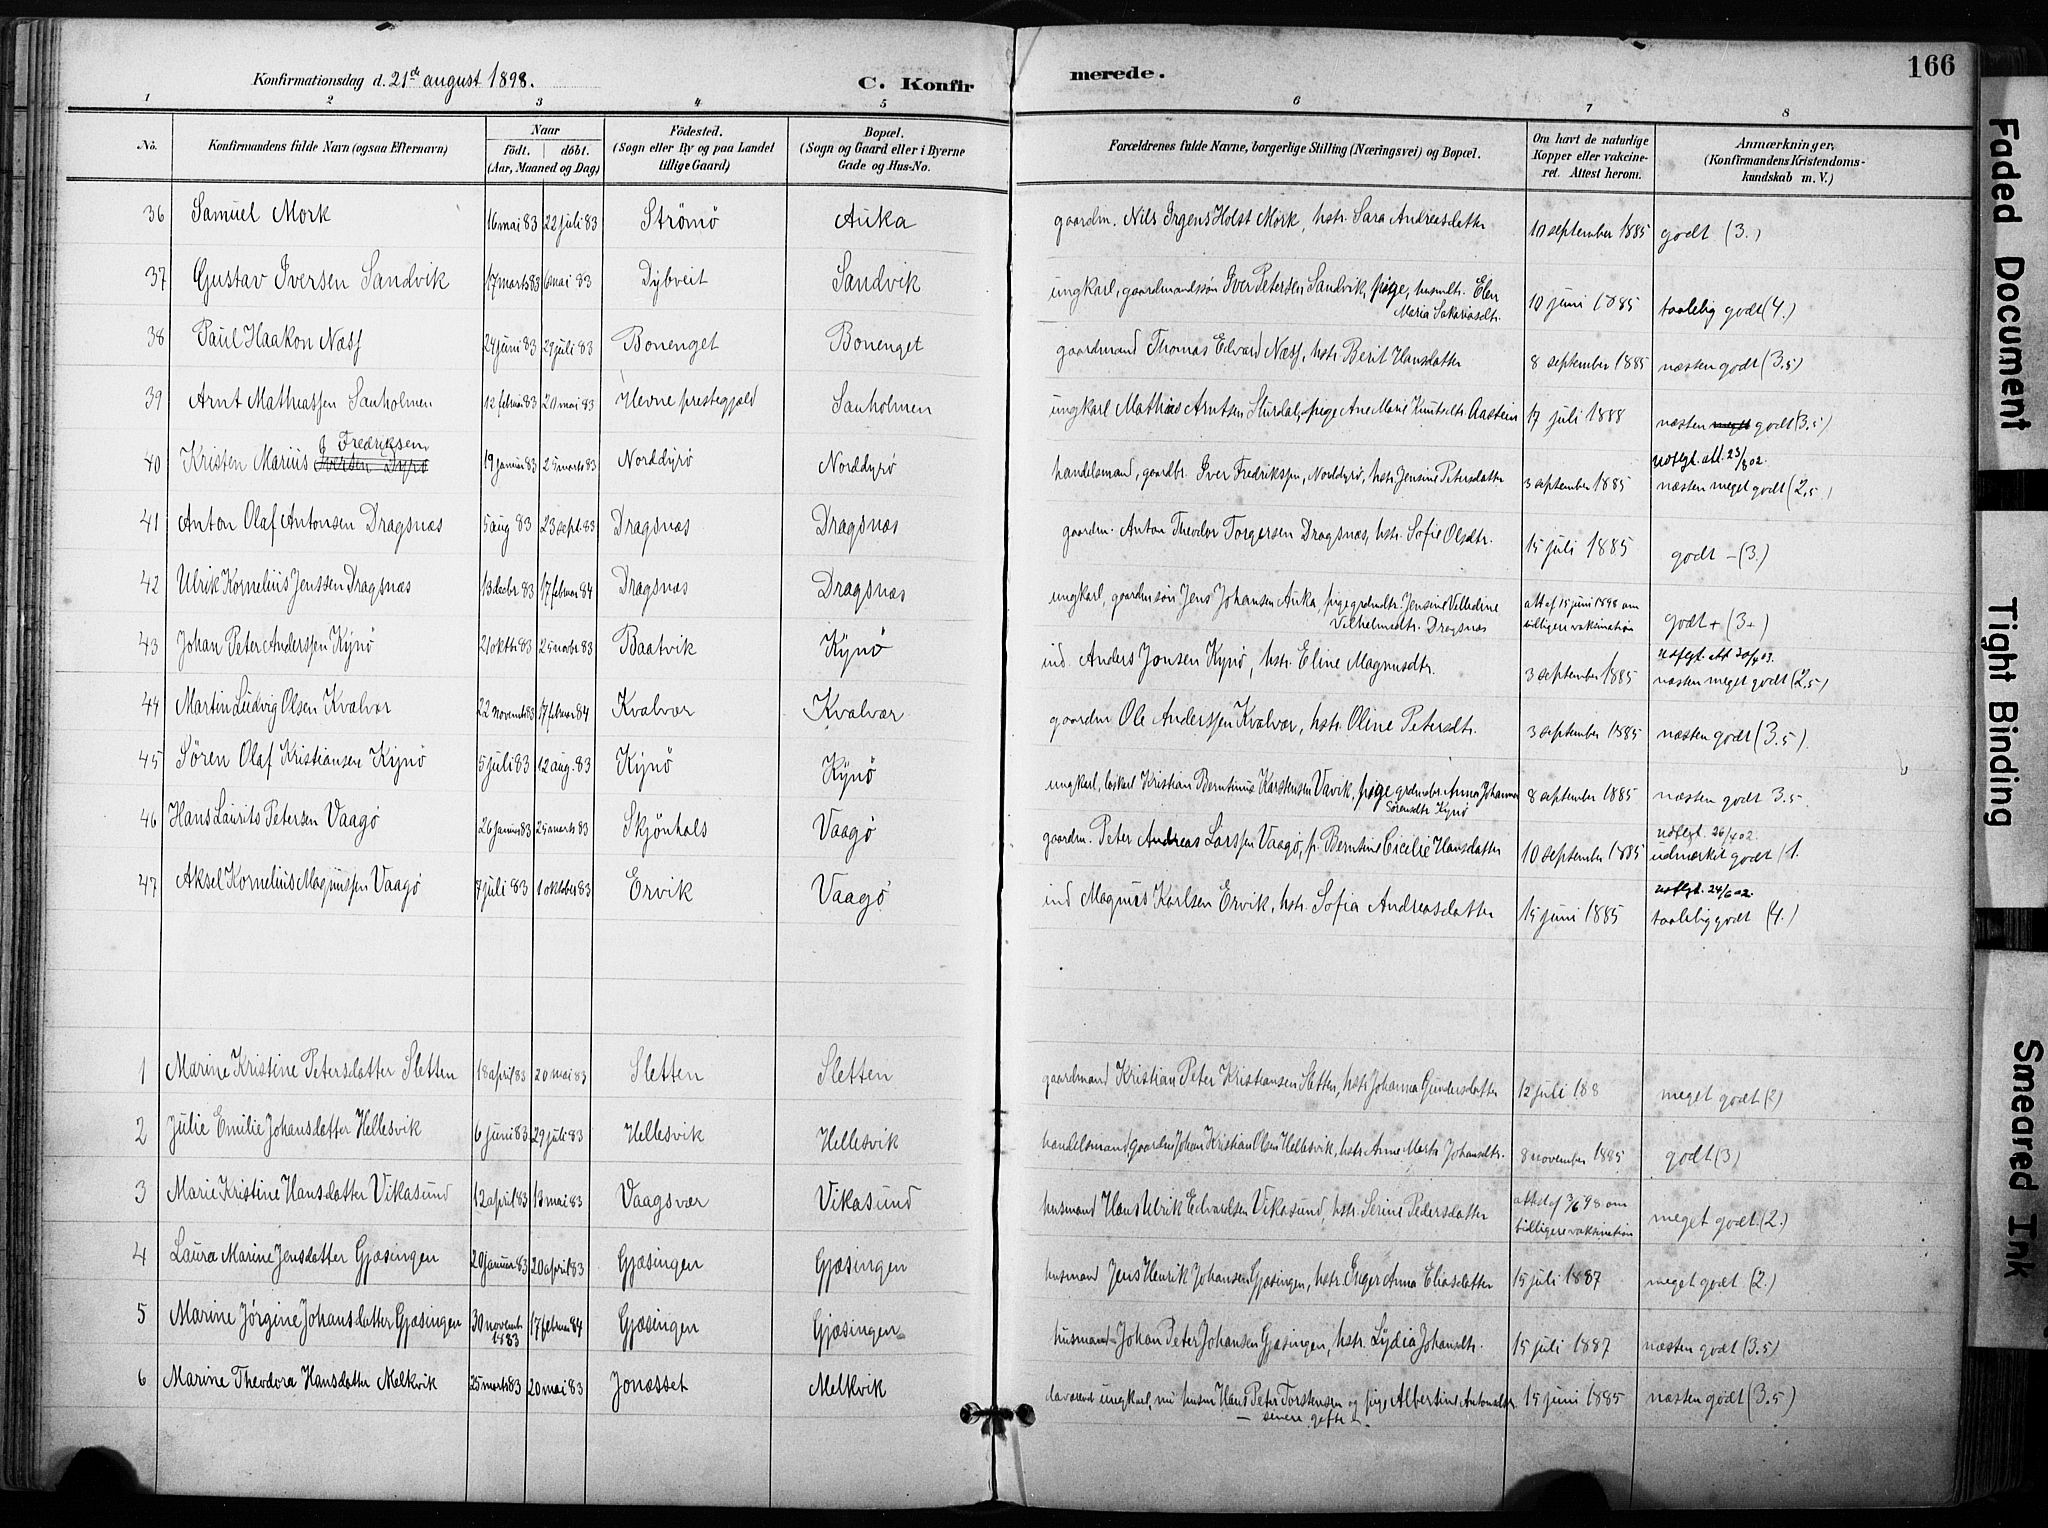 166
Konfirmationsdag d. 21de august 1898.
C. Konfir
merede.
1 2 3 4 5 6 7 8
No.
Konfirmandens fulde Navn (ogsaa Efternavn)
Naar
födt. döbt.
(Aar, Maaned og Dag)
Födested.
(Sogn eller By og paa Landet
tillige Gaard)
Bopæl.
(Sogn og Gaard eller i Byerne
Gade og Hus-No.
Forældrenes fulde Navne, borgerlige Stilling (Næringsvei) og Bopæl.
Om havt de naturlige
Kopper eller vakcine-
ret. Attest herom.
Anmærkninger,
(Konfirmandens Kristendoms-
kundskab m. V.)
36 Samuel Mork 16 mai 83 22 juli 83 Strömö Auka gaardm. Nils Irgens Holst Mork, hstr. Sara Andreasdatter 10 september 1885 godt (3.)
37 Gustav Iversen Sandvik 17 marts 83 6 mai 83 Dybveit Sandvik ungkarl, gaardmandssøn Iver Petersen Sandvik, pige, husmdtr. Elen
Maria Sakariasdtr. 10 juni 1885 taalelig godt (4.)
38 Paul Haakon Næss 24 juni 83 29 juli 83 Bonenget Bonenget gaardmand Thomas Edvard Næss, hstr. Berit Hansdatter 8 september 1885 næsten godt (3.5)
39 Arnt Mathiassen Sauholmen 12 februar 83 20 mai 83 Hevne prestegjæld Sauholmen ungkarl Mathias Arntsen Sturdal, pige Ane Marie Knutsdtr. Aastein 17 juli 1888 næsten meget godt (3.5)
40 Kristen Marius Iversen Dyrø Fredriksen 19 januar 83 25 marts 83 Norddyrö Norddyrö handelsmand, gaardbr. Iver Fredrikssen, Norddyrø, hstr. Jensine Petersdatter 3 september 1885 utstgt. att. 23/8 02.
næsten meget godt (2.5)
41 Anton Olaf Antonsen Dragsnæs 5 aug 83 23 sept. 83 Dragsnæs Dragsnæs gaardm. Anton Theodor Torgersen Dragsnæs, hstr. Sofie Olsdtr. 15 juli 1885 godt - (3.)
42 Ulrik Kornelius Jenssen Dragsnæs 13 decbr 83 17 februar 84 Dragsnæs Dragsnæs ungkarl, gaardmsøn Jens Johansen Auka, pige grdmdtr. Jensine Velledine
Vilhelmsdtr. Dragsnæs att af 15 juni 1898 om
tidligere vaksination godt + (3+)
43 Johan Peter Anderssen Kynö 21 oktbr 83 25 novbr 83 Baatvik Kynö ind. Anders Jonsen Kynö, hstr. Eline Magnusdtr. 3 september 1885 utstgt. att 30/4 03.
næsten meget godt (2.5)
44 Martin Ludvig Olsen Kvalvær 22 novemb 83 17 februar 84 Kvalvær Kvalvær gaardm Ole Anderssen Kvalvær, hstr. Oline Petersdtr. 3 september 1885 næsten godt (3.5)
45 Sören Olaf Kristiansen Kynö 5 juli 83 12 aug. 83 Kynö Kynö ungkarl, løskarl Kristian Berntinus Karstensen Vavik, pige grdmdtr. Anna Johanna
Sørensdtr Kynö 8 september 1885 næsten godt 3.5
46 Hans Laurits Petersen Vaagö 26 januar 83 25 marts 83 Skjönhals Vaagö gaardm. Peter Andreas Larssen Vaagö, p. Berntine Cicilie Hansdatter 10 september 1885 utstgt. 26/4 02.
udmerket godt (1.
47 Aksel Kornelius Magnussen Vaagö 7 juli 83 1 oktober 83 Ervik Vaagö ind Magnus Karlsen Ervik, hstr. Sofia Andreasdatter 15 juni 1885 utstgt. 24/6 02.
taalelig godt (4.)
1 Marine Kristine Petersdatter Sletten 18 april 83 20 mai 83 Sletten Sletten gaardmand Kristian Peter Kristiansen Sletten, hstr Johanna Gundersdatter 12 juli 188 meget godt (2)
2 Julie Emilie Johansdatter Hellesvik 6 juni 83 29 juli 83 Hellesvik Hellesvik handelsmand gaardm Johan Kristian Olsen Hellesvik, hstr. Anne Marta Johansdtr. 8 november 1885 godt (3)
3 Marie Kristine Hansdatter Vikasund 12 april 83 13 mai 83 Vaagsvær Vikasund husmand Hans Ulrik Edvardsen Vikasund, hstr. Serine Pedersdatter attest af 3/6 98 om
tidligere vaksination meget godt (2.)
4 Laura Marine Jensdatter Gjæsingen 20 januar 83 20 april 83 Gjæsingen Gjæsingen husmand Jens Henrik Johansen Gjæsingen, hstr. Inger Anna Eliasdatter 15 juli 1887 meget godt (2.)
5 Marine Jörgine Johansdatter Gjæsingen 30 novemb 1883 17 februar 84 Gjæsingen Gjæsingen husmand Johan Peter Johansen Gjæsingen, hstr. Lydia Johansdtr. 15 juli 1887 næsten godt (3.5)
6 Marine Theodora Hansdatter Melkvik 25 marts 83 20 mai 83 Jonasset Melkvik daværend ungkarl, nu husm Hans Peter Torstensen og pige Albertine Antonsdtr.
— senere gifte — 15 juni 1885 næsten godt (3.5)
Faded Document
Tight Binding
Smeared Ink